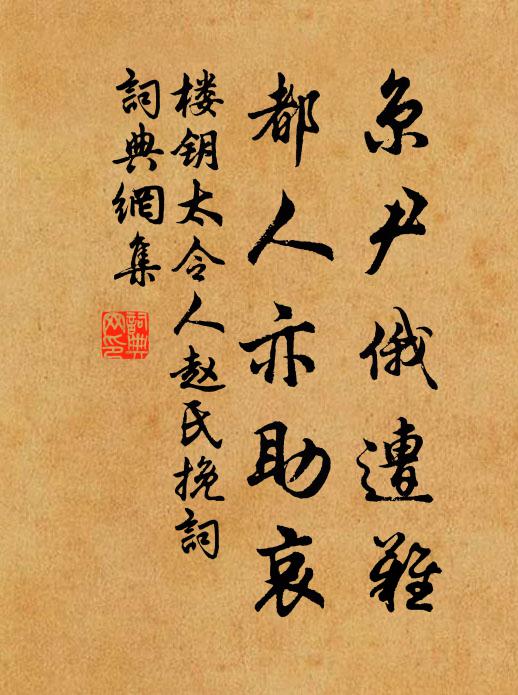 京尹俄遭难
都人亦助哀
楼钥太令人赵氏挽词
词典網集
詞典網印